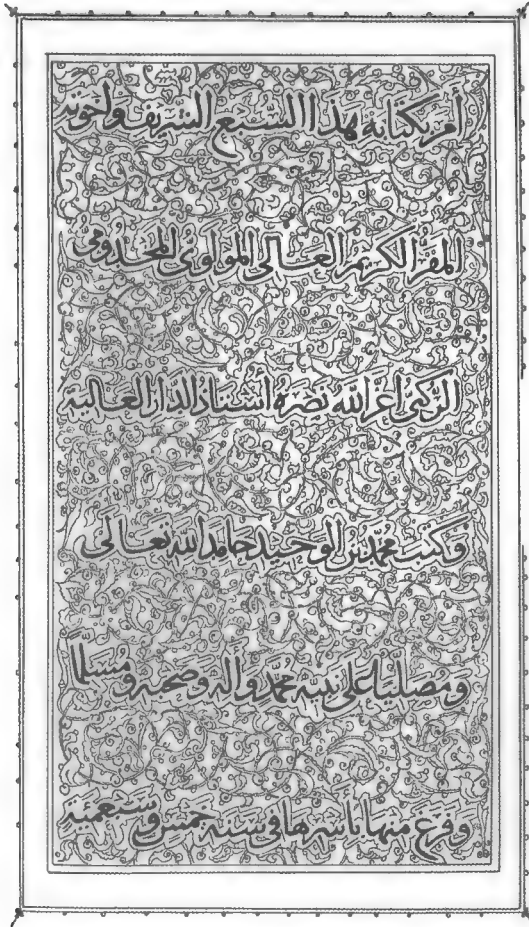 أمر بكتابة هذا السبع الشريف وأخوته
المقر الكريم العالى المولوى المخدومى
الركنى أعز الله نصره أستاذ الدار العالية
وكتب محمد بن الوحيد حامدا لله تعالى
ومصليا على نبيه محمد وآله وصحبه ومسلما
وفرغ منها بأسرها في سنة خمس وسبعمئية